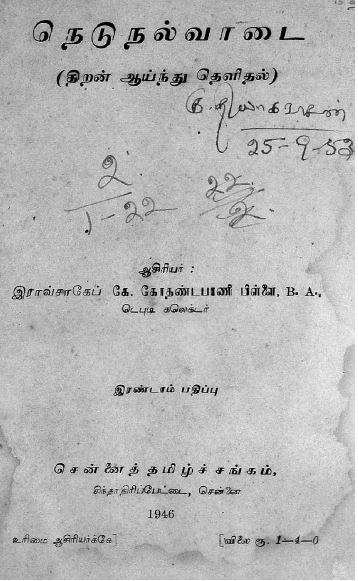 நெடுநல்வாடை
(திறன் ஆய்ந்து தெளிதல்)
25-9-53
ஆசிரியர் :
இராவ்சாகேப் கே. கோதண்டபாணி பிள்ளை, B. A.,
டெபுடி கலெக்டர்
இரண்டாம் பதிப்பு
சென்னைத்தமிழ்ச்சங்கம்,
சிந்தாதிரிப்பேட்டை, சென்னை
1946
உரிமை ஆசிரியர்க்கே] [விலை ரூ. 1—4—0